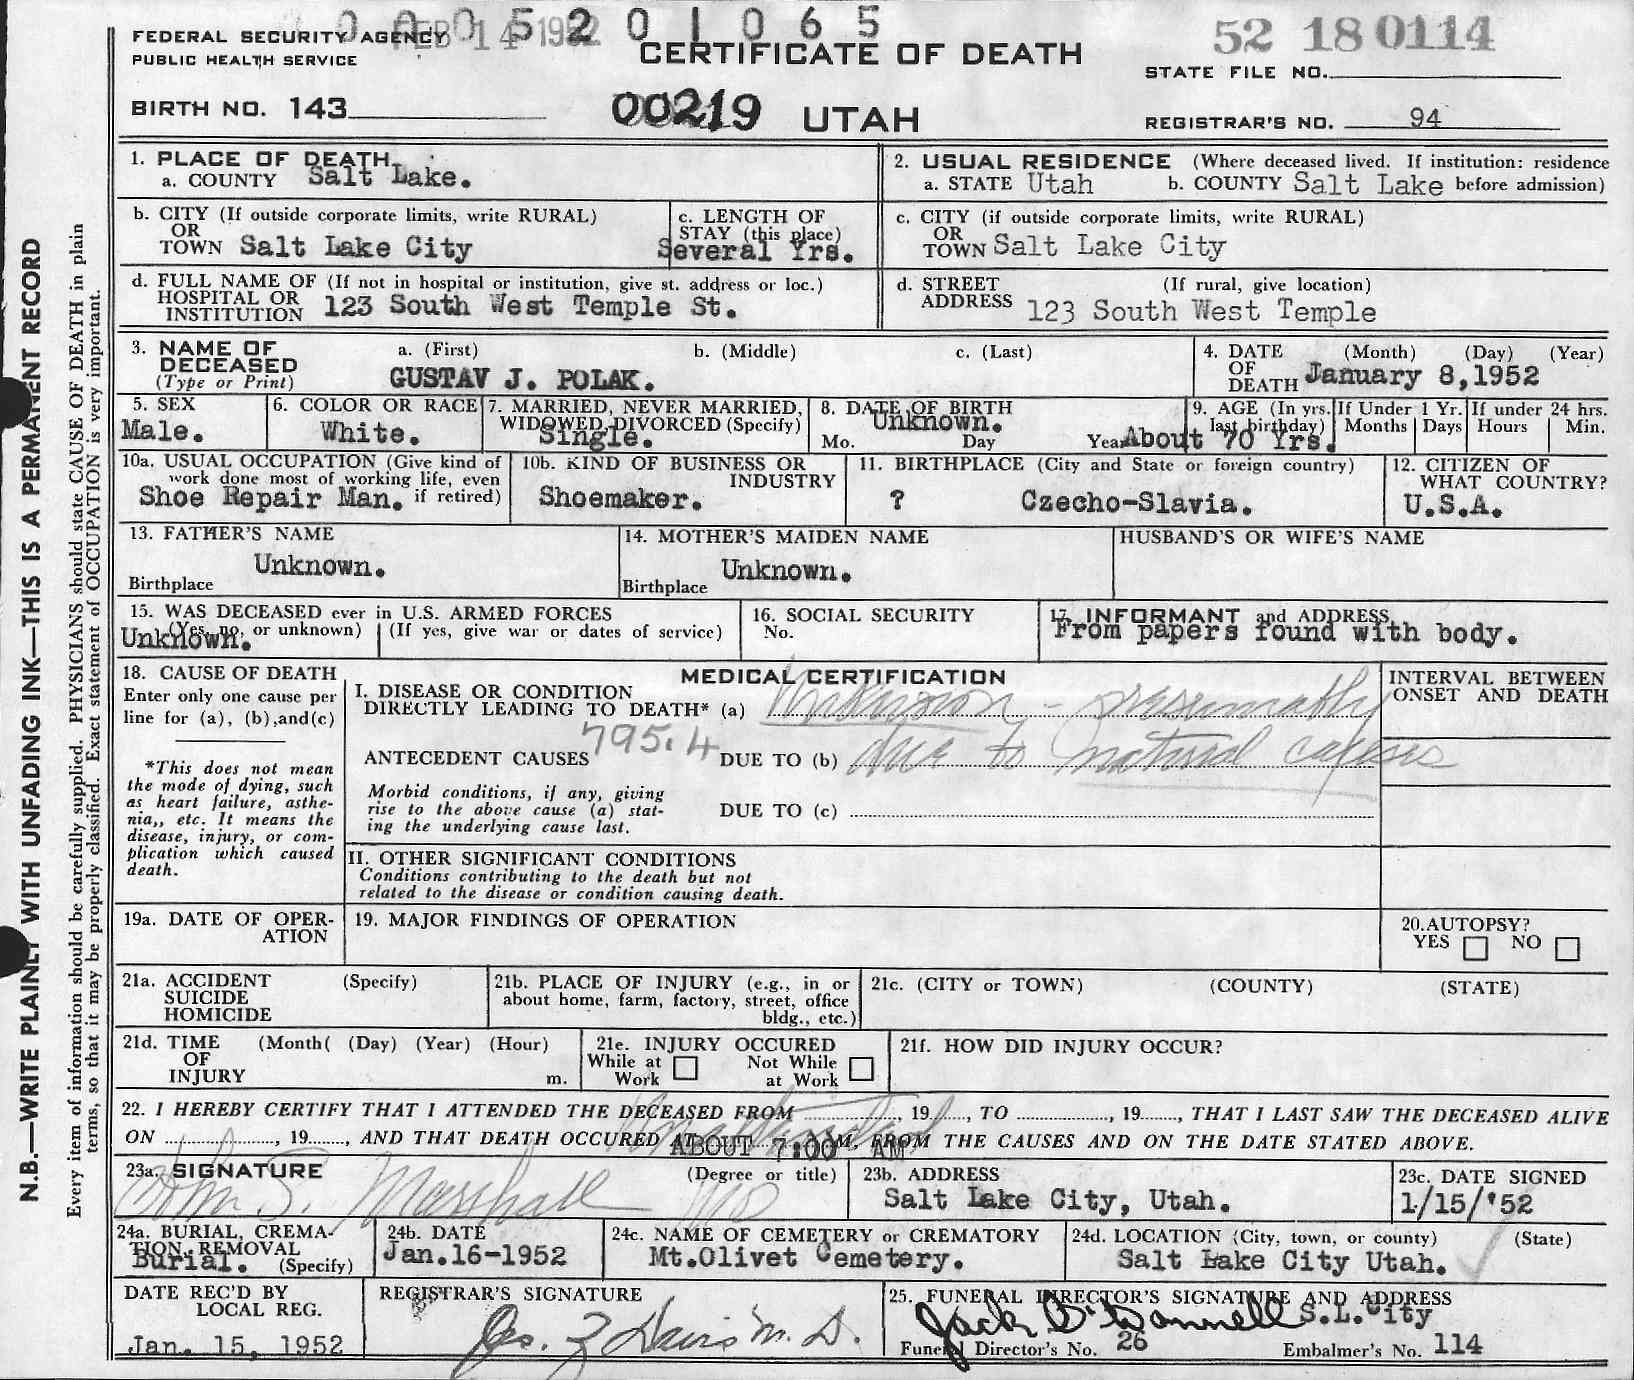 0 0 0 5 2 0 1 0 6 5
FEB 14 1952
52 18 0114
FEDERAL SECURITY AGENCY
PUBLIC HEALTH SERVICE
CERTIFICATE OF DEATH
STATE FILE NO.
BIRTH NO. 143
00219 UTAH
REGISTRAR'S NO. 94
1. PLACE OF DEATH
a. COUNTY Salt Lake.
2. USUAL RESIDENCE (Where deceased lived. If institution: residence
a. STATE Utah b. COUNTY Salt Lake before admission)
b. CITY (If outside corporate limits, write RURAL)
OR
TOWN Salt Lake City
c. LENGTH OF
STAY (this place)
Several Yrs.
c. CITY (if outside corporate limits, write RURAL)
OR
TOWN Salt Lake City
d. FULL NAME OF (If not in hospital or institution, give st. address or loc.)
HOSPITAL OR
INSTITUTION 123 South West Temple St.
d. STREET (If rural, give location)
ADDRESS 123 South West Temple
3. NAME OF DECEASED
(Type or Print)
a. (First) b. (Middle) c. (Last)
GUSTAV J. POLAK.
4. DATE OF DEATH (Month) (Day) (Year)
January 8,1952
5. SEX
Male.
6. COLOR OR RACE
White.
7. MARRIED, NEVER MARRIED,
WIDOWED, DIVORCED (Specify)
Single.
8. DATE OF BIRTH
Unknown.
Mo. Day Year
9. AGE (In yrs.
last birthday)
About 70 Yrs.
If Under 1 Yr.
Months Days
If under 24 hrs.
Hours Min.
10a. USUAL OCCUPATION (Give kind of
work done most of working life, even
if retired)
Shoe Repair Man.
10b. KIND OF BUSINESS OR
INDUSTRY
Shoemaker.
11. BIRTHPLACE (City and State or foreign country)
? Czecho-Slavia.
12. CITIZEN OF
WHAT COUNTRY?
U.S.A.
13. FATHER'S NAME
Unknown.
Birthplace
14. MOTHER'S MAIDEN NAME
Unknown.
Birthplace
HUSBAND'S OR WIFE'S NAME
15. WAS DECEASED ever in U.S. ARMED FORCES
(Yes, no, or unknown) (If yes, give war or dates of service)
Unknown.
16. SOCIAL SECURITY
No.
17. INFORMANT and ADDRESS
From papers found with body.
18. CAUSE OF DEATH
Enter only one cause per
line for (a), (b),and(c)
*This does not mean
the mode of dying, such
as heart failure, asthe-
nia,, etc. It means the
disease, injury, or com-
plication which caused
death.
MEDICAL CERTIFICATION
I. DISEASE OR CONDITION
DIRECTLY LEADING TO DEATH* (a) Unknown - presumably
795.4
ANTECEDENT CAUSES DUE TO (b) due to natural causes
Morbid conditions, if any, giving
rise to the above cause (a) stat-
ing the underlying cause last.
DUE TO (c)
INTERVAL BETWEEN
ONSET AND DEATH
II. OTHER SIGNIFICANT CONDITIONS
Conditions contributing to the death but not
related to the disease or condition causing death.
19a. DATE OF OPER-
ATION
19. MAJOR FINDINGS OF OPERATION
20.AUTOPSY?
YES NO
21a. ACCIDENT (Specify)
SUICIDE
HOMICIDE
21b. PLACE OF INJURY (e.g., in or
about home, farm, factory, street, office
bldg., etc.)
21c. (CITY or TOWN) (COUNTY) (STATE)
21d. TIME (Month( (Day) (Year) (Hour)
OF
INJURY m.
21e. INJURY OCCURED
While at Work Not While at Work
21f. HOW DID INJURY OCCUR?
22. I HEREBY CERTIFY THAT I ATTENDED THE DECEASED FROM , 19 , TO , 19 , THAT I LAST SAW THE DECEASED ALIVE
ON , 19 , AND THAT DEATH OCCURED AT ABOUT 7:00 AM M, FROM THE CAUSES AND ON THE DATE STATED ABOVE.
23a. SIGNATURE (Degree or title)
John S. Marshall MD
23b. ADDRESS
Salt Lake City, Utah.
23c. DATE SIGNED
1/15/'52
24a. BURIAL, CREMA-
TION, REMOVAL
Burial. (Specify)
24b. DATE
Jan.16-1952
24c. NAME OF CEMETERY or CREMATORY
Mt.Olivet Cemetery.
24d. LOCATION (City, town, or county) (State)
Salt Lake City Utah.
DATE REC'D BY
LOCAL REG.
Jan. 15, 1952
REGISTRAR'S SIGNATURE
Jos. Z Davis M.D.
25. FUNERAL DIRECTOR'S SIGNATURE AND ADDRESS
Jack O'Donnell S.L.City
Funeral Director's No. 26 Embalmer's No. 114
N.B.—WRITE PLAINLY WITH UNFADING INK—THIS IS A PERMANENT RECORD
Every item of information should be carefully supplied. PHYSICIANS should state CAUSE OF DEATH in plain
terms, so that it may be properly classified. Exact statement of OCCUPATION is very important.